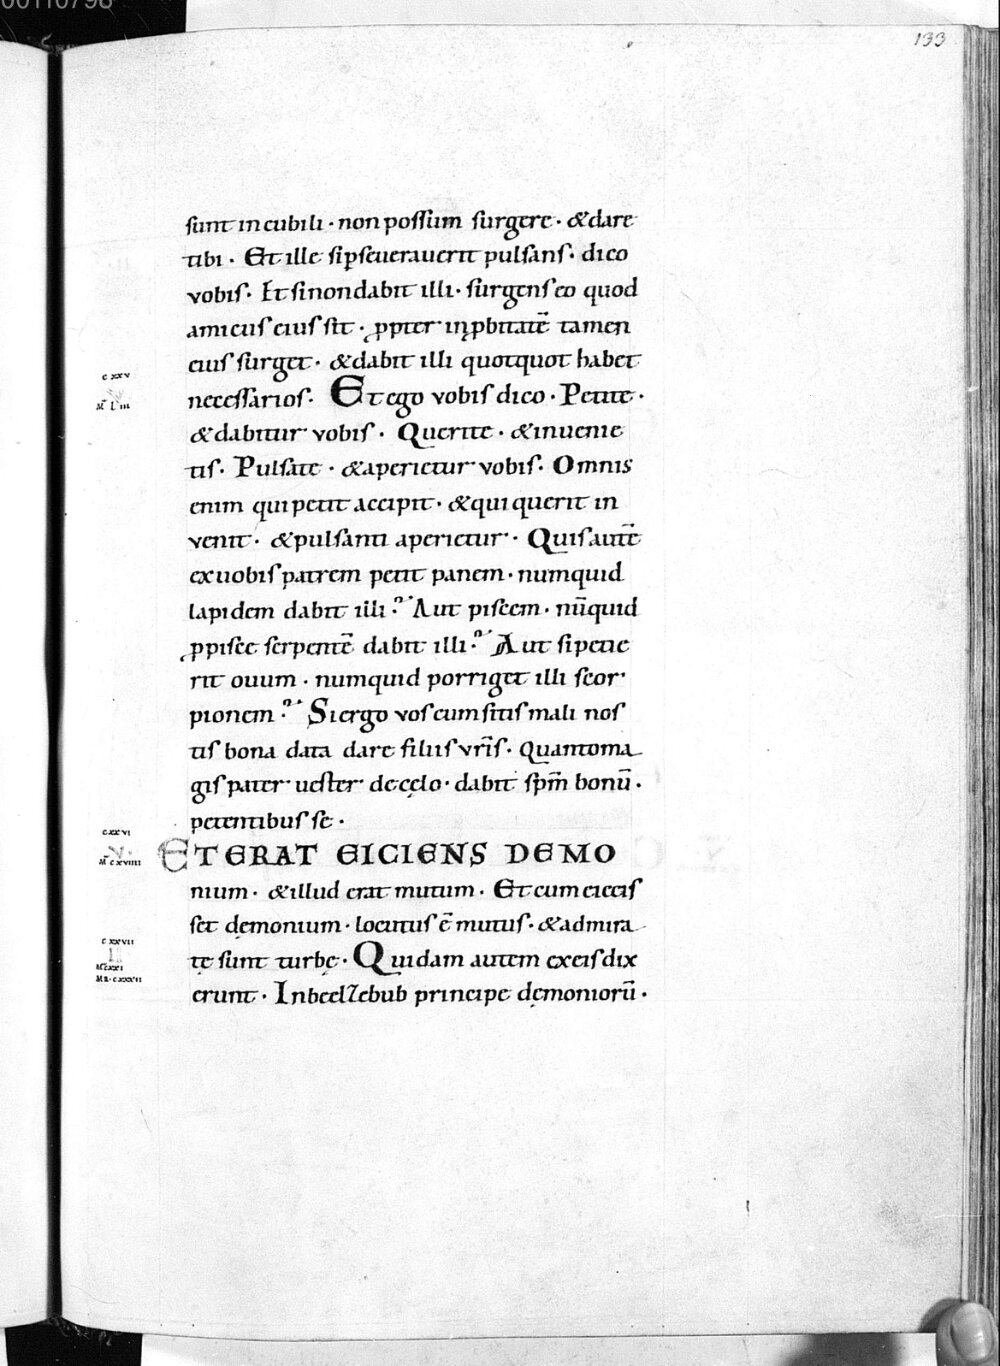 00110798
133
sunt in cubili · non possum surgere · & dare
tibi · Et ille si pseuerauerit pulsans · dico
vobis · Et si non dabit illi · surgens eo quod
amicus eius sit · ppter inpbitatē tamen
eius surget · & dabit illi quotquot habet
c xxv
necessarios · Et ego vobis dico · Petite ·
M̄ L iii
& dabitur vobis · Querite · & inuenie
tis · Pulsate · & aperietur vobis · Omnis
enim qui petit accipit · & qui querit in
venit · & pulsanti aperietur · Quis autē
ex uobis patrem petit panem · numquid
lapidem dabit illi ? Aut piscem · nūquid
p pisce serpentē dabit illi ? Aut si petie
rit ouum · numquid porriget illi scor
pionem ? Si ergo vos cum sitis mali nos
tis bona data dare filiis vr̄is · Quanto ma
gis pater uester de cęlo · dabit sp̄m bonū ·
petentibus se ·
c xxvi
ET ERAT EICIENS DEMO
M̄ cxviiii
nium · & illud erat mutum · Et cum eiecis
set dęmonium · locutus ē mutus · & admira
c xxvii
tę sunt turbę · Quidam autem ex eis dix
M cxxi
MR · cxxxii
erunt · In beelzebub principe dęmoniorū ·